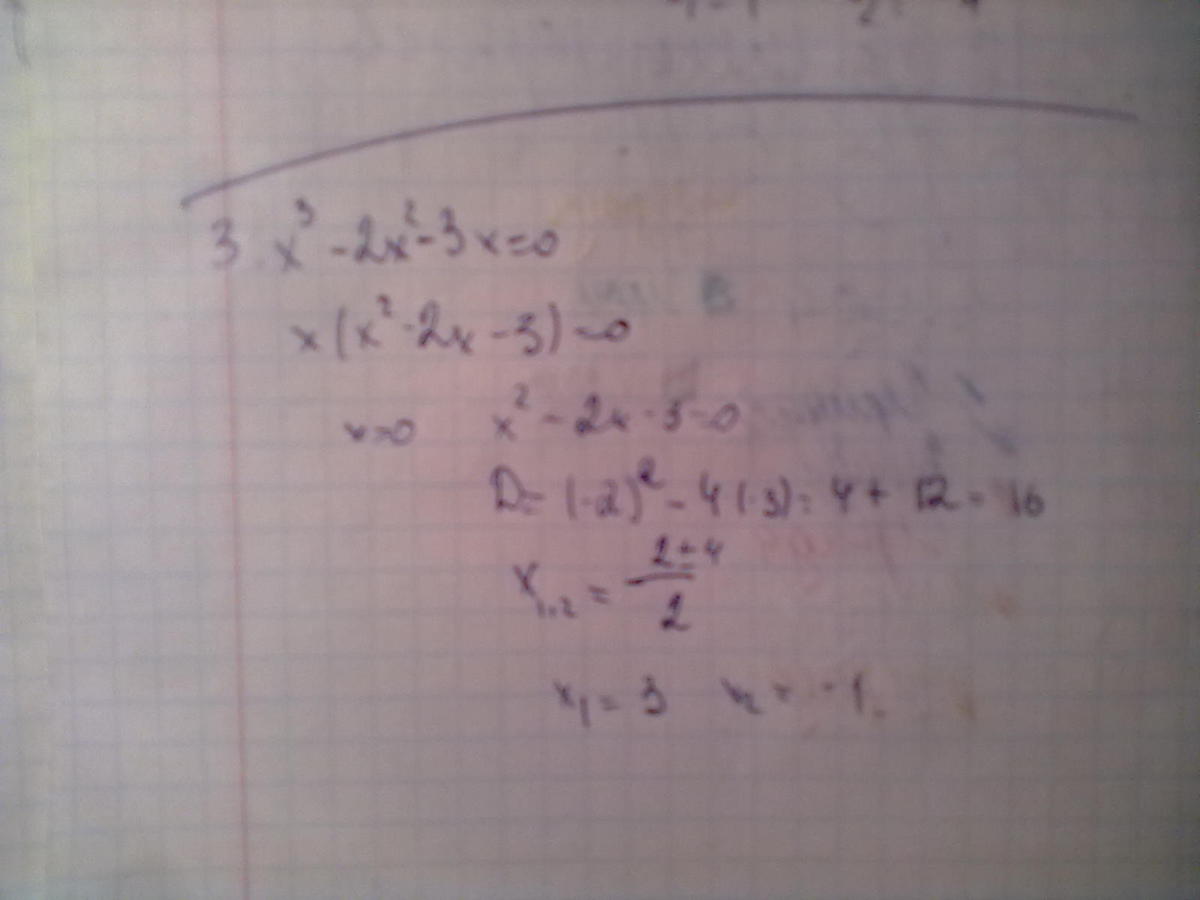 3. x³ - 2x² - 3x = 0
x(x² - 2x - 3) = 0
x = 0 x² - 2x - 3 = 0
D = (-2)² - 4(-3) = 4 + 12 = 16
x₁,₂ = (2 ± 4) / 2
x₁ = 3 x₂ = -1.